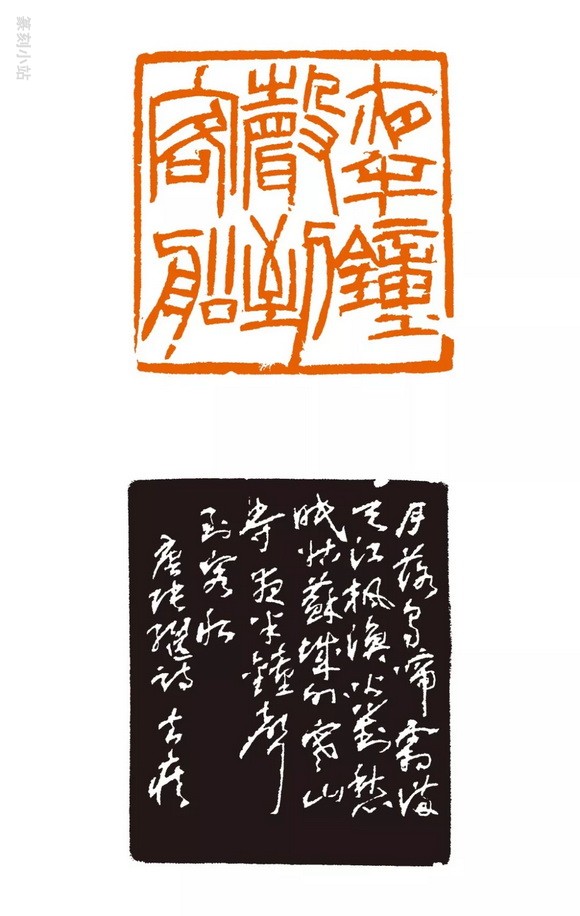 篆刻小站
夜半鐘
聲到
客船
月落烏啼霜滿
天江枫漁火對愁
眠姑蘇城外寒山
寺夜半鐘聲
到客船
唐張繼詩 去疾